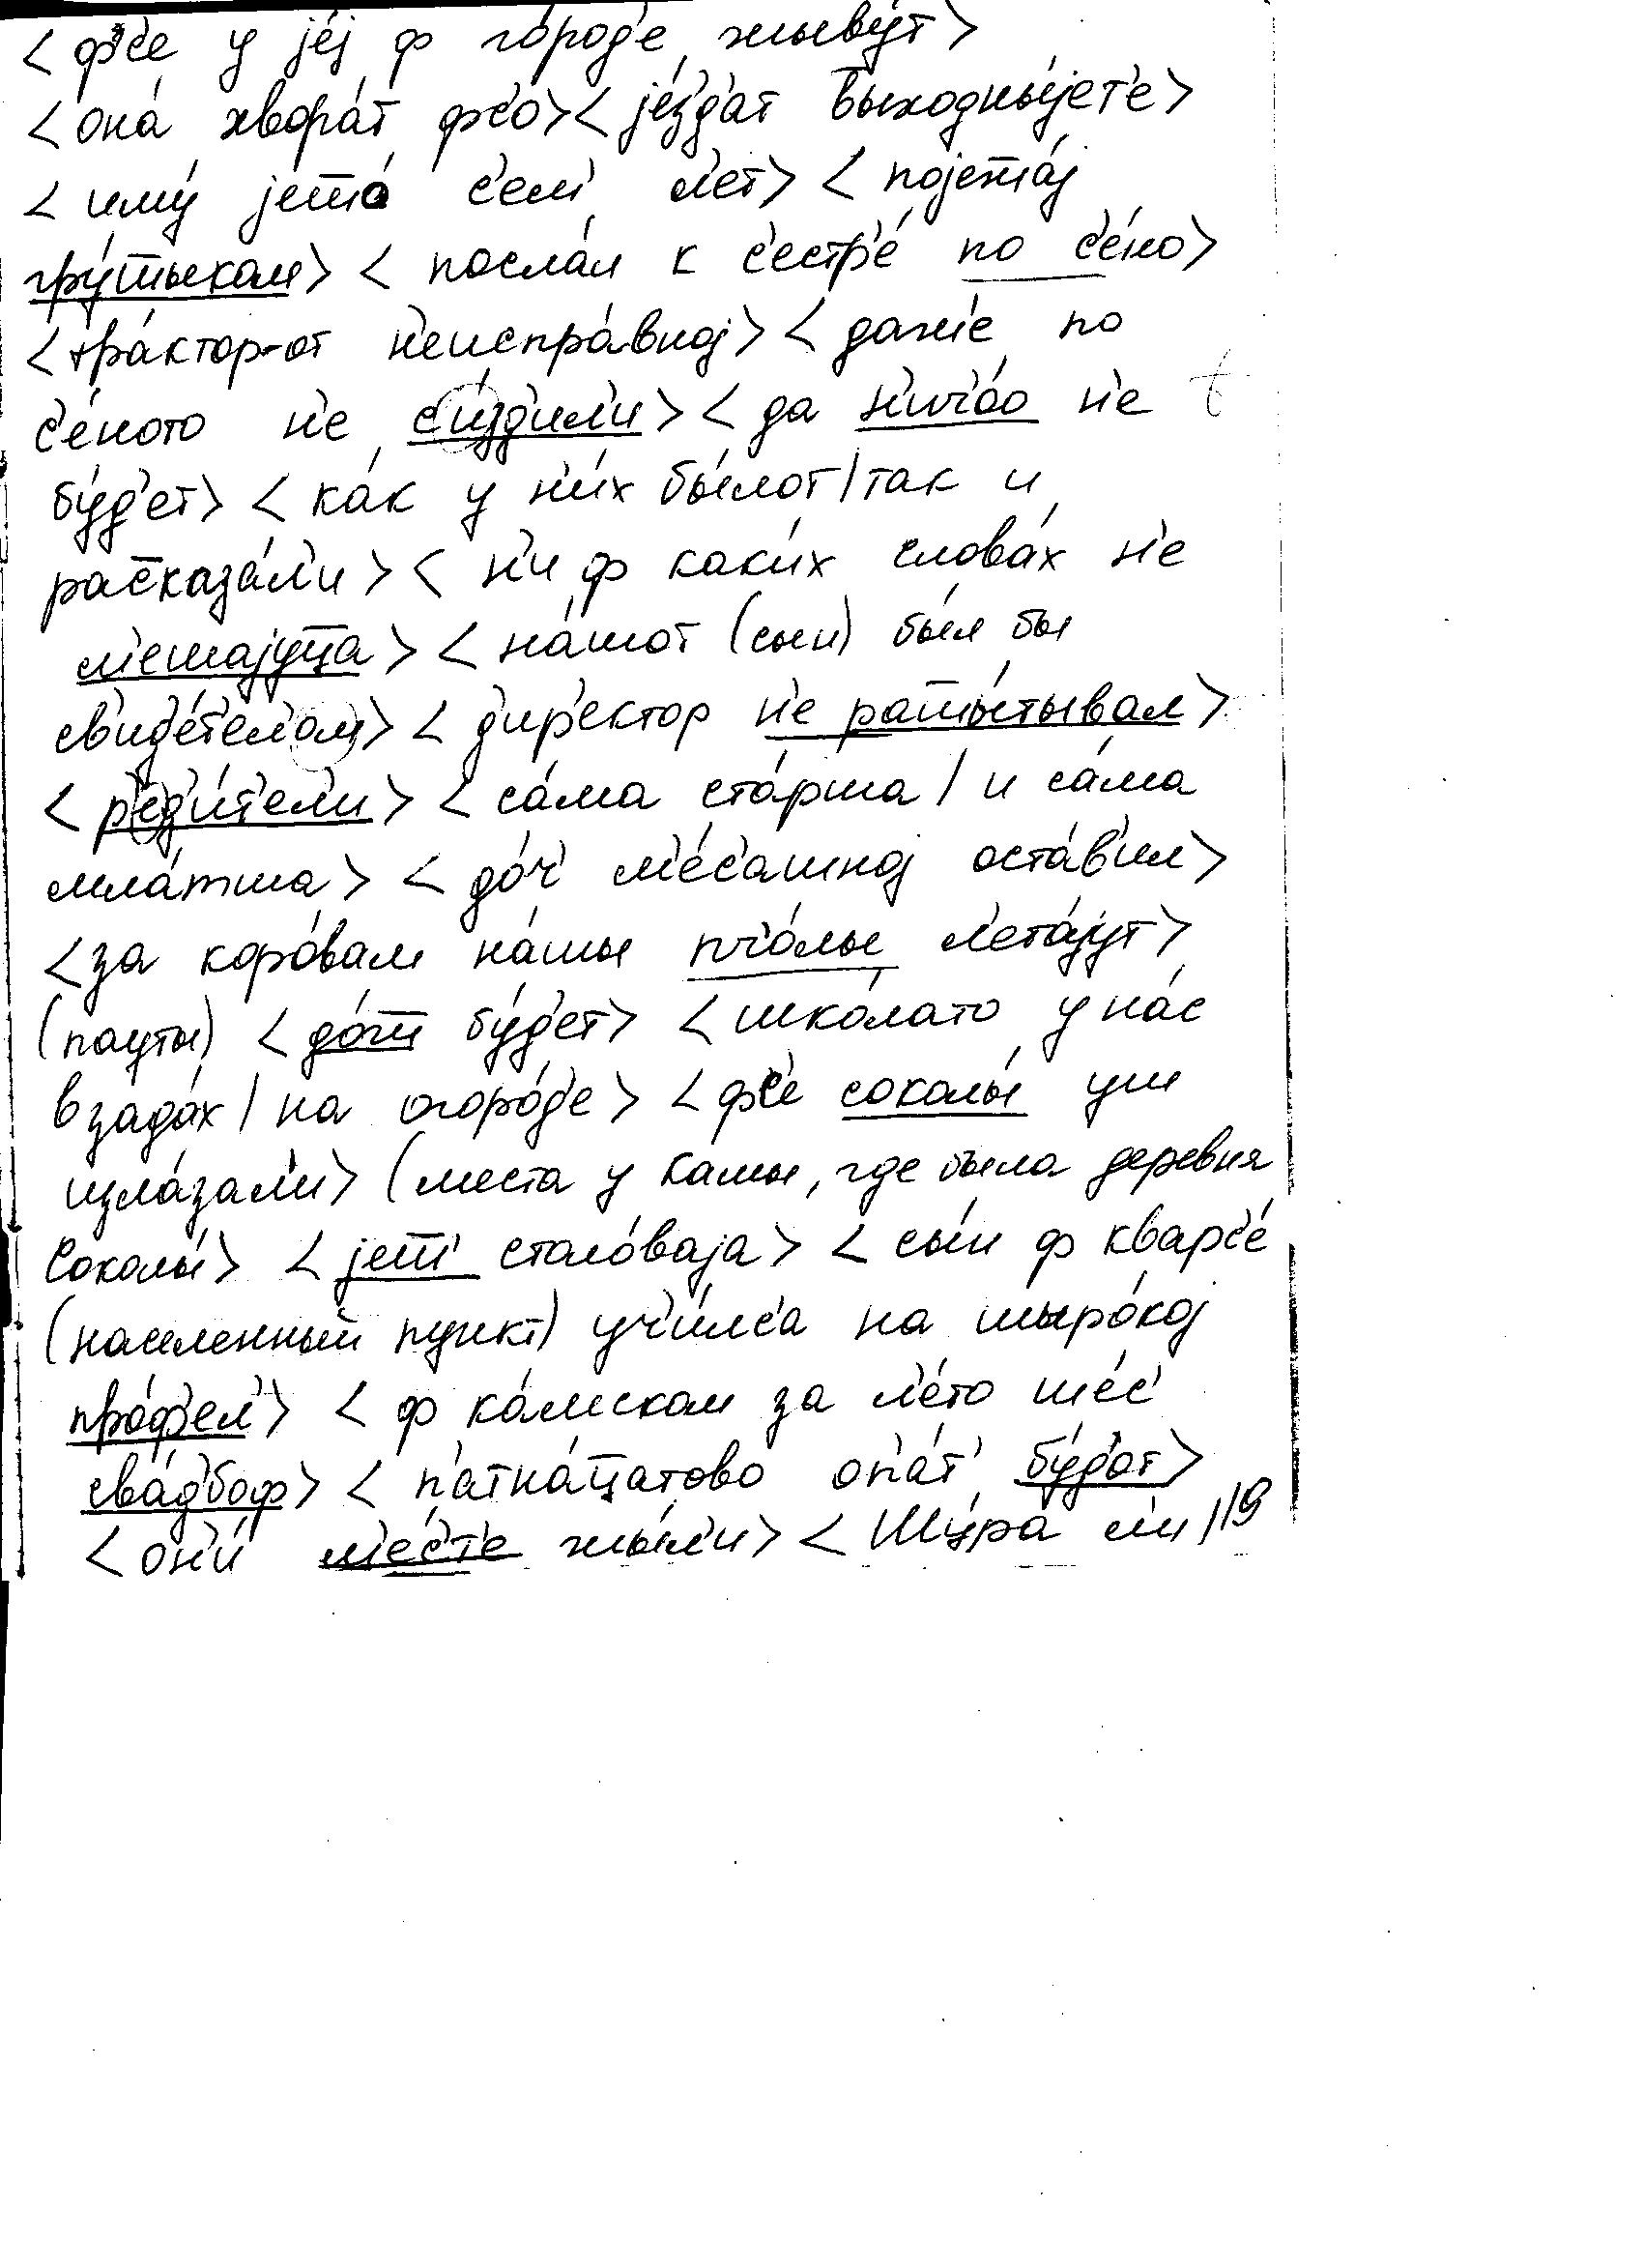 < фс'е у је́ј ф го́род'е жывýт>
<она́ хвора́т фс'о> < је́з'д'ат выходны́јет'е>
< иму́ јешо́ с'ем' л'ет> < појежжа́ј
гру́шыкам> < посла́л к с'естр'е́ по с'е́но>
<тра́ктор-от н'еиспра́вној> < даж'е по
с'е́ното н'е с'и́зд'ил'и> < да н'ич'о́о н'е
бу́д'ет> < ка́к у н'и́х бы́лот | так и
рас̅каза́л'и > < н'и ф каки́х слова́х н'е
м'ешајуц̅а > < на́шот (сын) был бы
св'ид'е́т'ел'ом> < д'ир'ектор н'е рашшы́тывал>
< р'ед'и́т'ел'и > < са́ма ста́рша | и са́ма
мла́тша > < до́ч' м'е́с'ашној оста́в'ил>
<за коро́вам на́шы пч'о́лы л'ета́јут>
(пауты) < до́ш̅ бу́д'ет> < шко́лато у на́с
в зада́х | на огоро́д'е > < фс'е соколы́ уш
изла́зал'и> (места у Камы, где была деревня
Соколы́> < јеш̅' стало́ваја > < сы́н ф кварс'е́
(населенный пункт) уч'и́лс'а на шыро́кој
про́ф'ел'> < ф ка́мском за л'е́то ше́с'
сва́д'боф> < п'атна́ц̅атово оп'а́т' бу́д'от>
< он'и́ м'е́с'т'е жы́л'и> < Шу́ра л'и 119